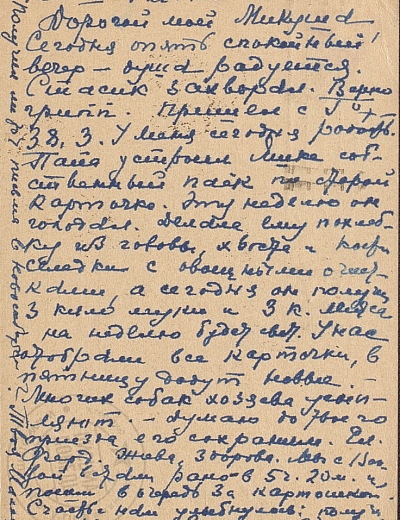 Дорогой мой Микуша!
Сегодня опять спокойный
вечер – душа радуется.
Стасик захворал. Верно
грипп. Пришел с t°
38,3. У меня сегодня радость.
Папа устроил Мике соб-
ственный паёк по второй
карточке. Эту неделю он
голодал. Делала ему похлеб-
ку из головы, хвоста и кост
селедки с овощными очист-
ками, а сегодня он получил
3 кило муки и 3 к. мяса
на неделю будет сыт. У нас
отобрали все карточки, в
пятницу дадут новые. –
Многих собак хозяева усып-
ляют – думаю до твоего
приезда его сохраним. Ел.
жива, здорова. Мы с
рано в 5 ч. 20 м. и
пошли в очередь за картошкой.
Счастье нам улыбнулось:
Получил ли